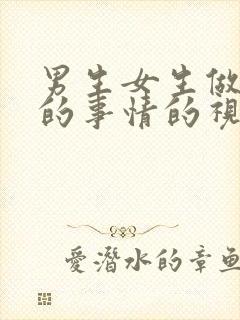 男生女生做
的事情的視
愛潛水的章魚